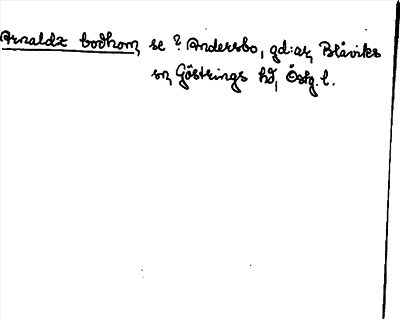 Arnaldz bodhom, se ? Andersbo, gd:ar, Blåviks
sn, Göstrings hd, Östg. l.